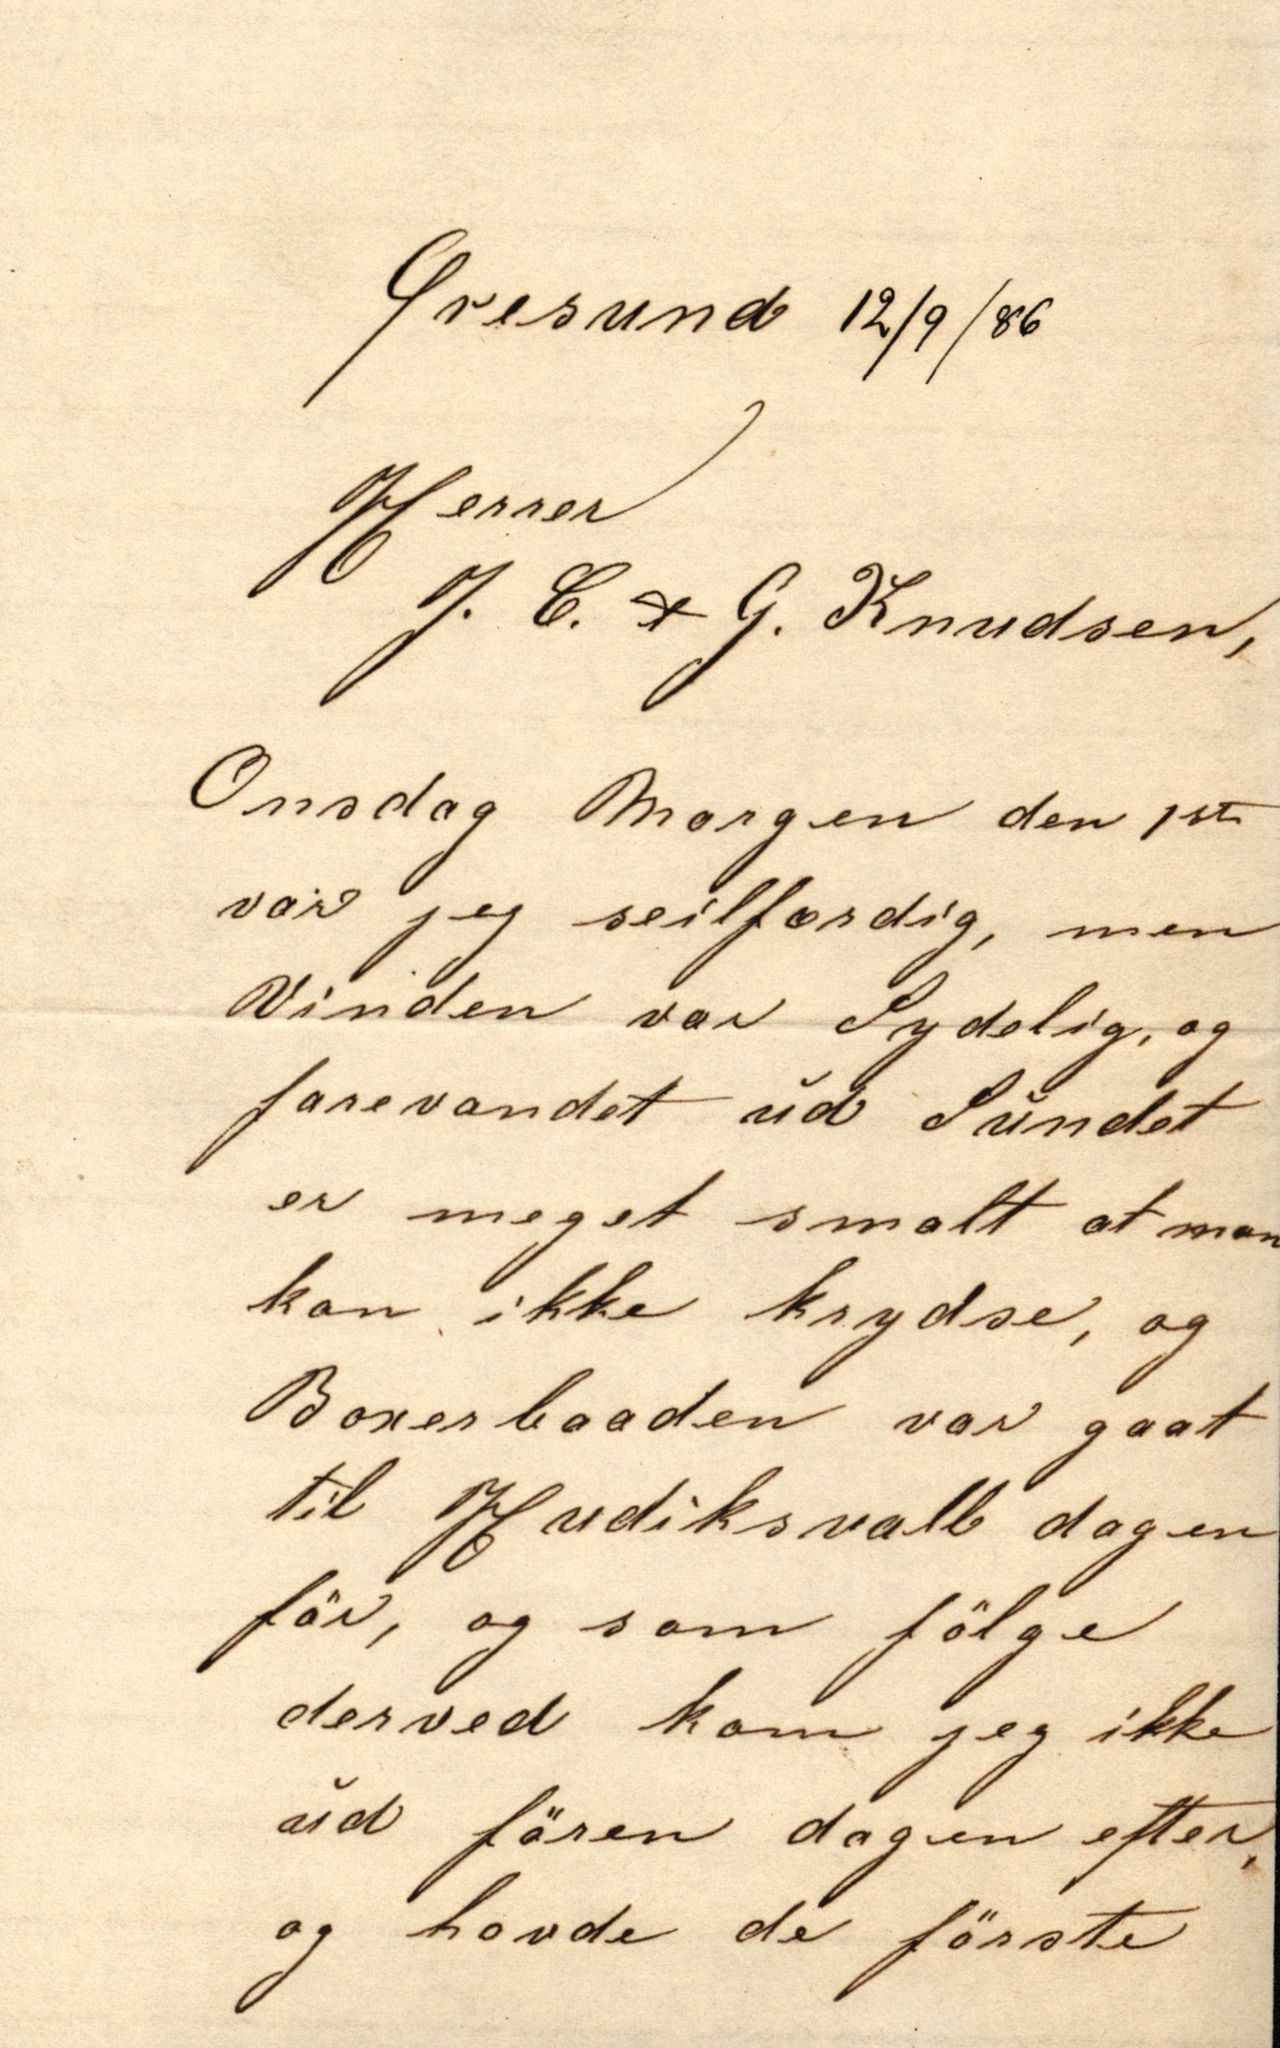 Öresund 12/9/86
Herrer
J. C. & G. Knudsen,
Onsdag Morgen den 1st
var jeg seilfærdig, men
Vinden var Sydelig, og
farevandet ud Sundet
er meget smalt at man
kan ikke krydse, og
Boxerbaaden var gaat
til Hudiksvall dagen
för, og som fölge
derved kom jeg ikke
ud fören dagen efter,
og havde de förste